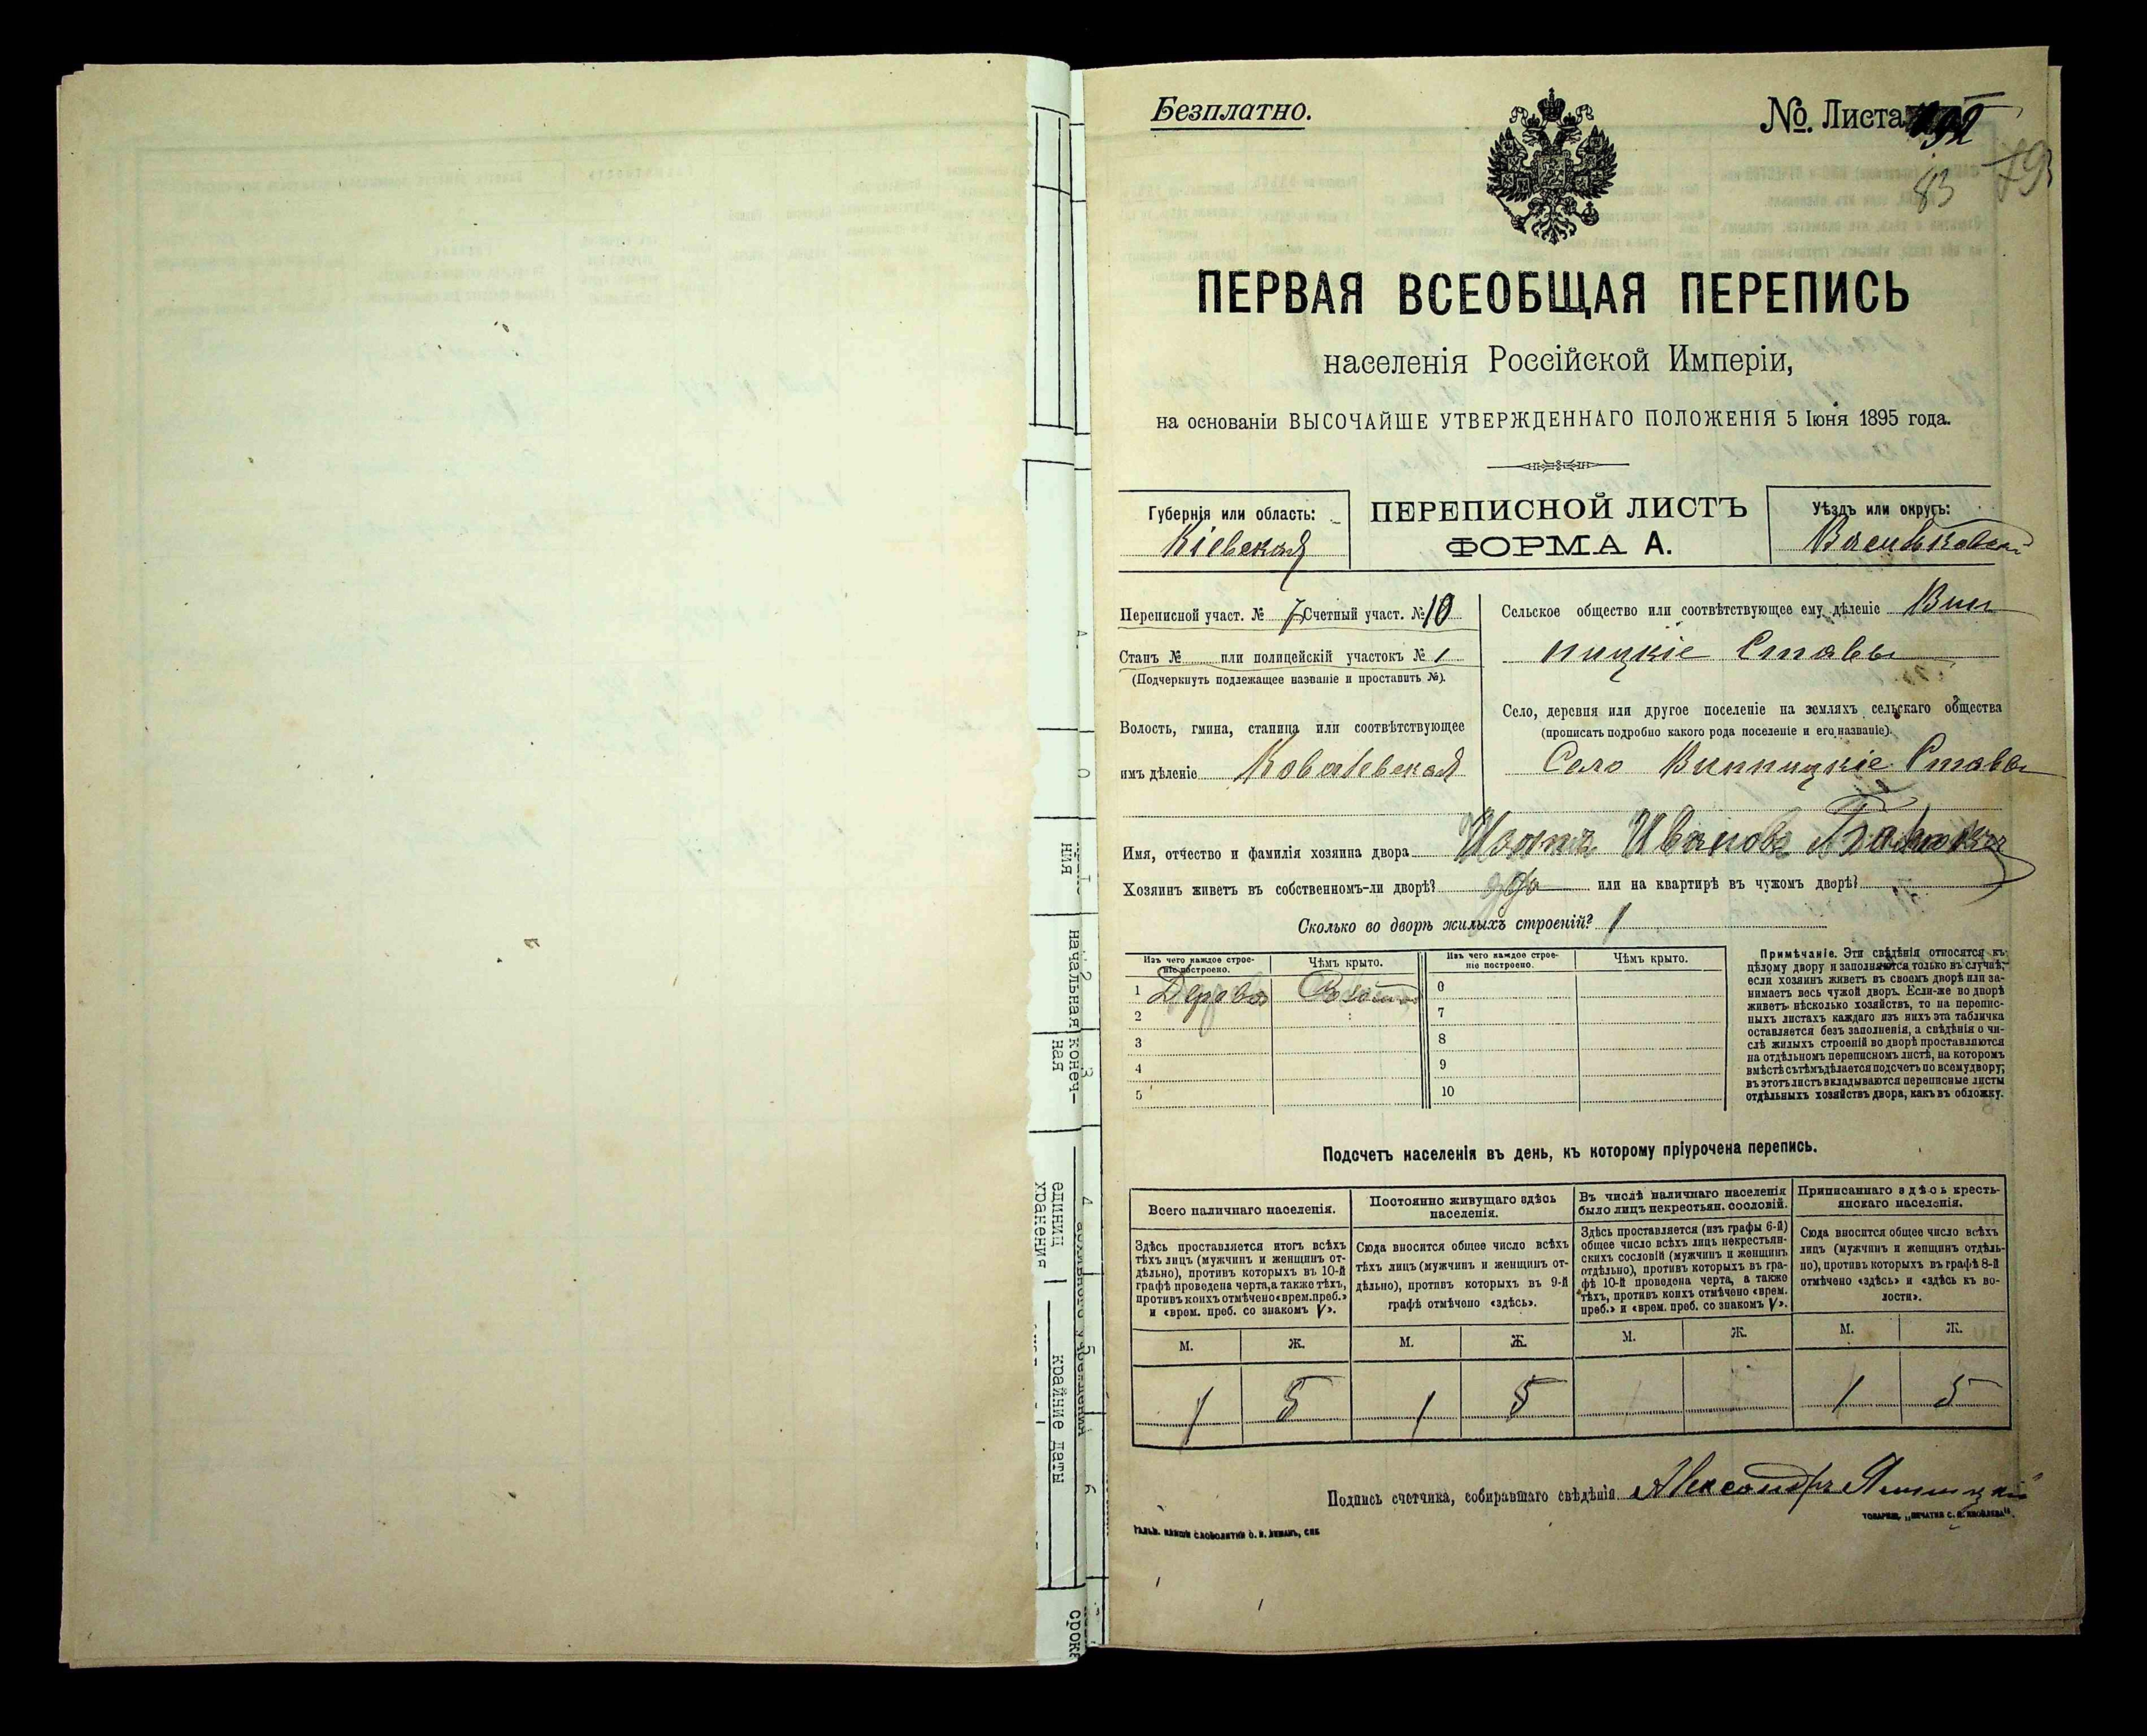 Безплатно.
№. Листа 192
83
79
ПЕРВАЯ ВСЕОБЩАЯ ПЕРЕПИСЬ
населенія Россійской Имперіи,
на основаніи ВЫСОЧАЙШЕ УТВЕРЖДЕННАГО ПОЛОЖЕНІЯ 5 Іюня 1895 года.
Губернія или область:
Кіевская
ПЕРЕПИСНОЙ ЛИСТЪ
ФОРМА А.
Уѣздъ или округъ:
Васильковскій
Переписной участ. № 7 Счетный участ. № 10
Станъ № или полицейскій участокъ № 1
(Подчеркнуть подлежащее названіе и проставить №).
Волость, гмина, станица или соотвѣтствующее
имъ дѣленіе Ковалевская
Сельское общество или соотвѣтствующее ему дѣленіе Вин
ницкіе Ставы
Село, деревня или другое поселеніе на земляхъ сельскаго общества
(прописать подробно какого рода поселеніе и его названіе).
Село Винницкіе Ставы
Имя, отчество и фамилія хозяина двора Иванов
Хозяинъ живетъ въ собственномъ-ли дворѣ? да или на квартирѣ въ чужомъ дворѣ?
Сколько во дворѣ жилыхъ строеній? 1
Изъ чего каждое строе-
ніе построено.
Чѣмъ крыто.
Изъ чего каждое строе-
ніе построено.
Чѣмъ крыто.
1 Дерева Соломою 6
2 7
3 8
4 9
5 10
Примѣчаніе. Эти свѣдѣнія относятся къ
цѣлому двору и заполняются только въ случаѣ,
если хозяинъ живетъ въ своемъ дворѣ или за-
нимаетъ весь чужой дворъ. Если-же во дворѣ
живетъ нѣсколько хозяйствъ, то на перепис-
ныхъ листахъ каждаго изъ нихъ эта табличка
оставляется безъ заполненія, а свѣдѣнія о чи-
слѣ жилыхъ строеній во дворѣ проставляются
на отдѣльномъ переписномъ листѣ, на которомъ
вмѣстѣ съ тѣмъ дѣлается подсчетъ по всему двору;
въ этотъ листъ вкладываются переписные листы
отдѣльныхъ хозяйствъ двора, какъ въ обложку.
Подсчетъ населенія въ день, къ которому пріурочена перепись.
Всего наличнаго населенія.
Здѣсь проставляется итогъ всѣхъ
тѣхъ лицъ (мужчинъ и женщинъ от-
дѣльно), противъ которыхъ въ 10-й
графѣ проведена черта, а также тѣхъ,
противъ коихъ отмѣчено «врем. преб.»
и «врем. преб. со знакомъ V».
М. Ж.
1 5
Постоянно живущаго здѣсь
населенія.
Сюда вносится общее число всѣхъ
тѣхъ лицъ (мужчинъ и женщинъ от-
дѣльно), противъ которыхъ въ 9-й
графѣ отмѣчено «здѣсь».
М. Ж.
1 5
Въ числѣ наличнаго населенія
было лицъ некрестьян. сословій.
Здѣсь проставляется (изъ графы 6-й)
общее число всѣхъ лицъ некрестьян-
скихъ сословій (мужчинъ и женщинъ
отдѣльно), противъ которыхъ въ гра-
фѣ 10-й проведена черта, а также
тѣхъ, противъ коихъ отмѣчено «врем.
преб.» и «врем. преб. со знакомъ V».
М. Ж.
Приписаннаго здѣсь кресть-
янскаго населенія.
Сюда вносится общее число всѣхъ
лицъ (мужчинъ и женщинъ отдѣль-
но), противъ которыхъ въ графѣ 8-й
отмѣчено «здѣсь» и «здѣсь къ во-
лости».
М. Ж.
1 5
Подпись счетчика, собиравшаго свѣдѣнія Александръ
начальная
конеч-
ная
единиц
хранения
крайние даты